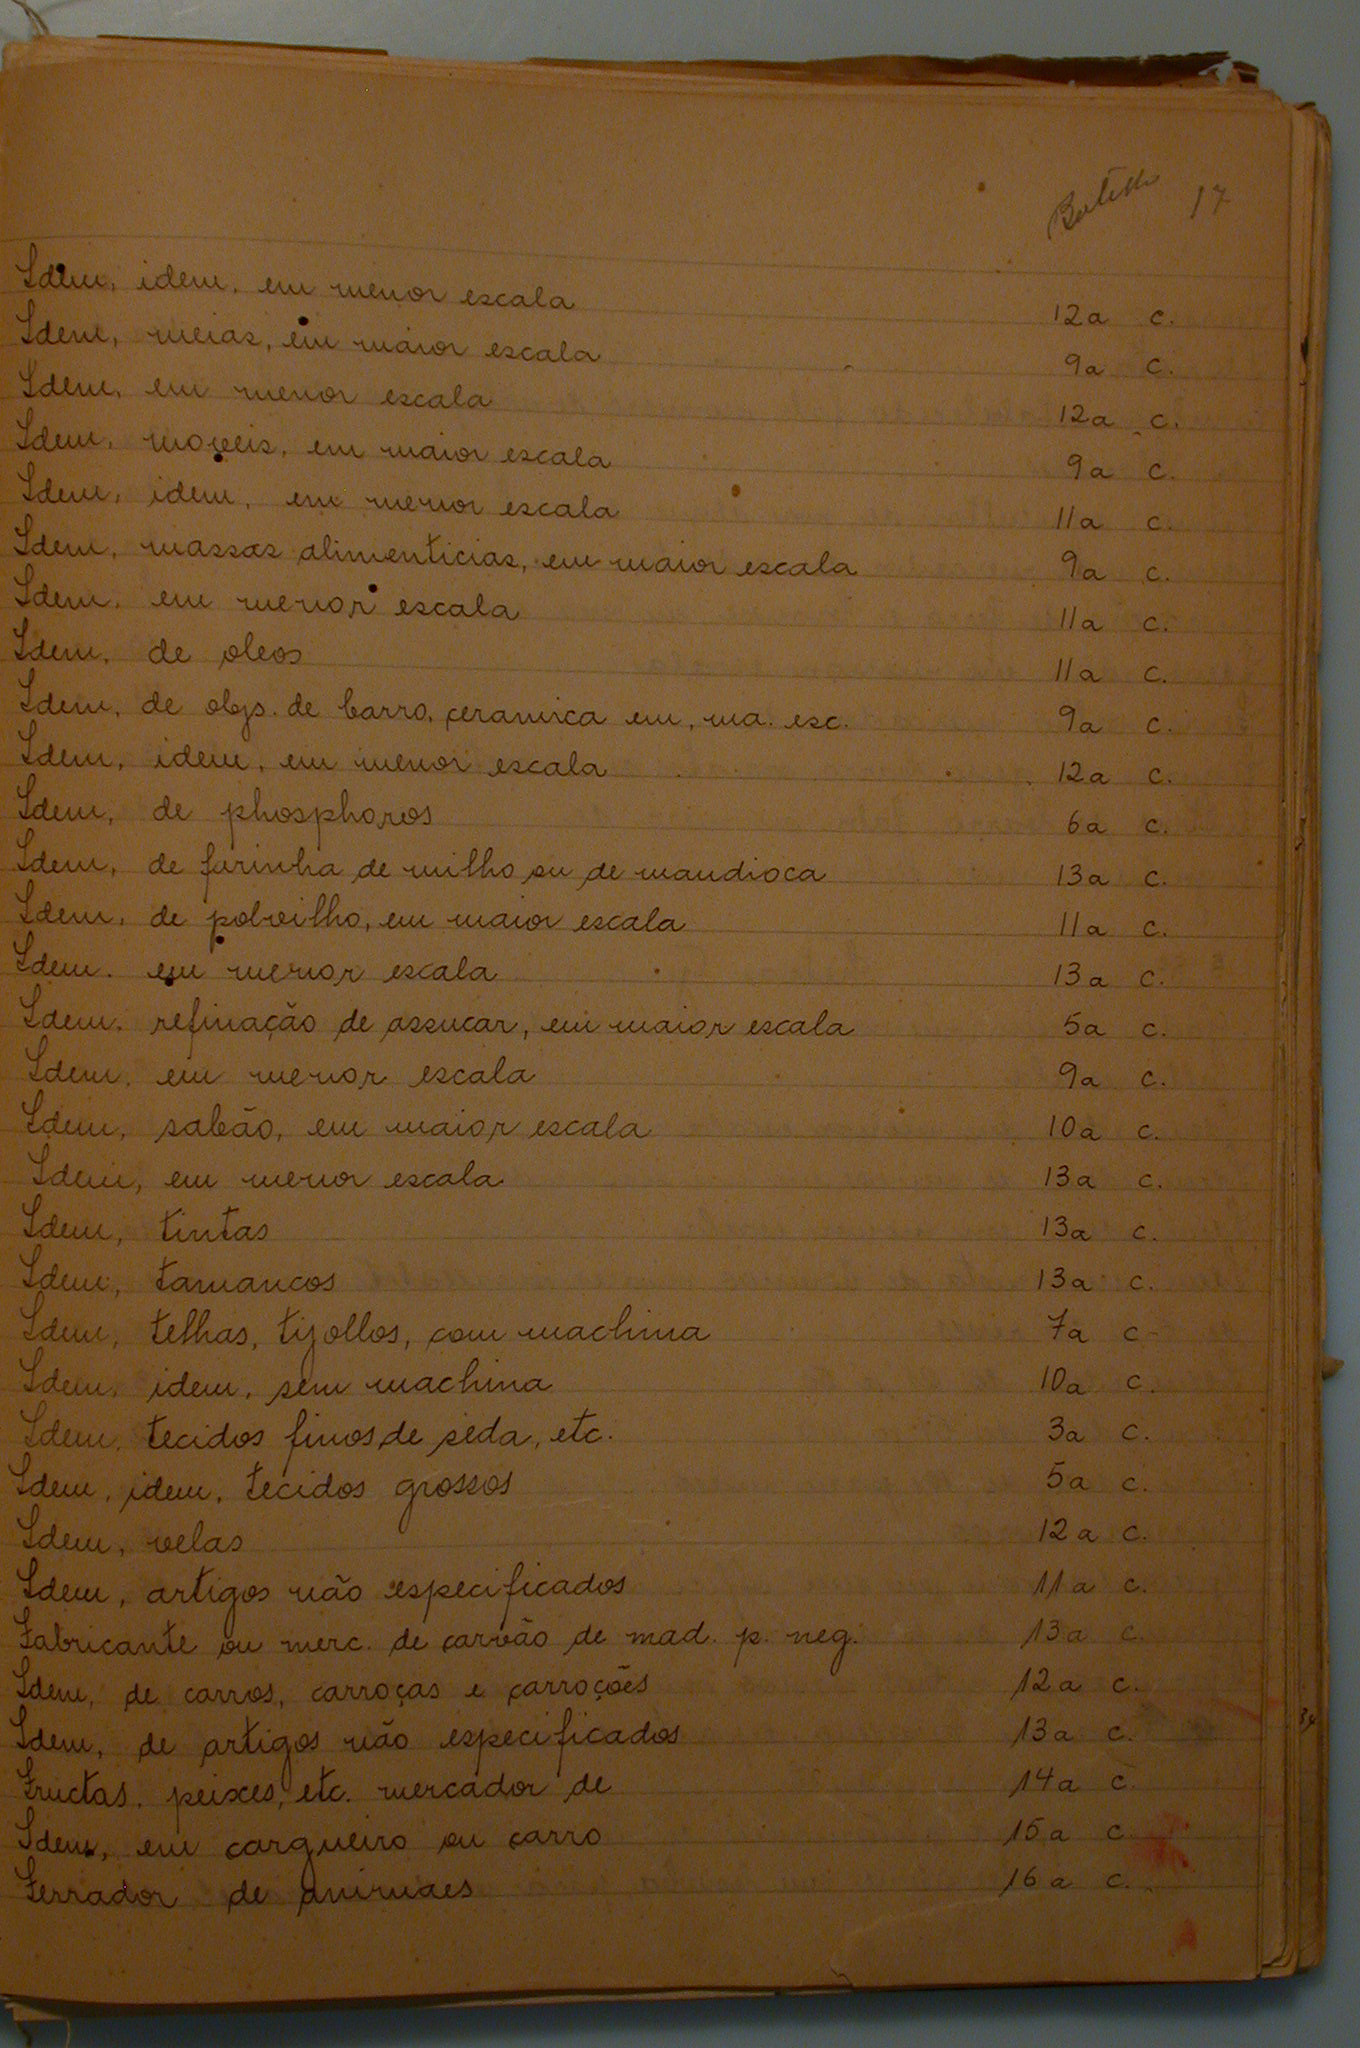 17
Idem, idem, em menor escala 12a c.
Idem, meias, em maior escala 9a c.
Idem, em menor escala 12a c.
Idem, moveis, em maior escala 9a c.
Idem, idem, em menor escala 11a c.
Idem, massas alimenticias, em maior escala 9a c.
Idem, em menor escala 11a c.
Idem, de oleos 11a c.
Idem, de objs. de barro, ceramica em, ma. esc. 9a c.
Idem, idem, em menor escala 12a c.
Idem, de phosphoros 6a c.
Idem, de farinha de milho ou de mandioca 13a c.
Idem, de polvilho, em maior escala 11a c.
Idem. em menor escala 13a c.
Idem, refinação de assucar, em maior escala 5a c.
Idem, em menor escala 9a c.
Idem, sabão, em maior escala 10a c.
Idem, em menor escala 13a c.
Idem, tintas 13a c.
Idem, tamancos 13a c.
Idem, telhas, tijollos, com machina 7a c.
Idem, idem, sem machina 10a c.
Idem, tecidos finos de seda, etc. 3a c.
Idem, idem, tecidos grossos 5a c.
Idem, velas 12a c.
Idem, artigos não especificados 11a c.
Fabricante ou merc. de carvão de mad. p. neg. 13a c.
Idem, de carros, carroças e carroções 12a c.
Idem, de artigos não especificados 13a c.
Fructas, peixes, etc. mercador de 14a c.
Idem, em cargueiro ou carro 15a c.
Ferrador de animaes 16a c.